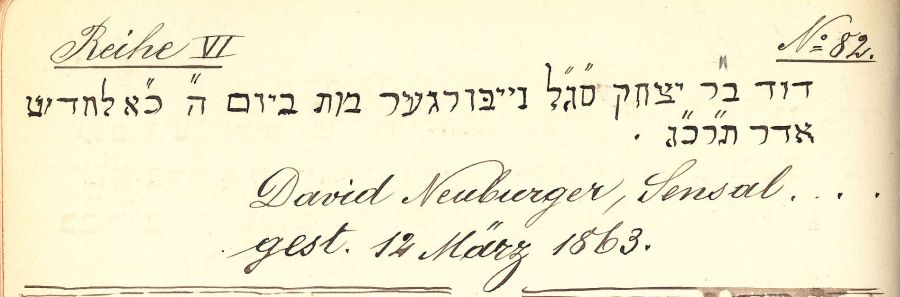 Reihe VI
No 82.
דוד ב"ר יצחק סג"ל נייבורגער מת ביום ה' כ"א לחדש
אדר תרכ"ג .
David Neuburger, Sensal . . . .
gest. 12 März 1863.